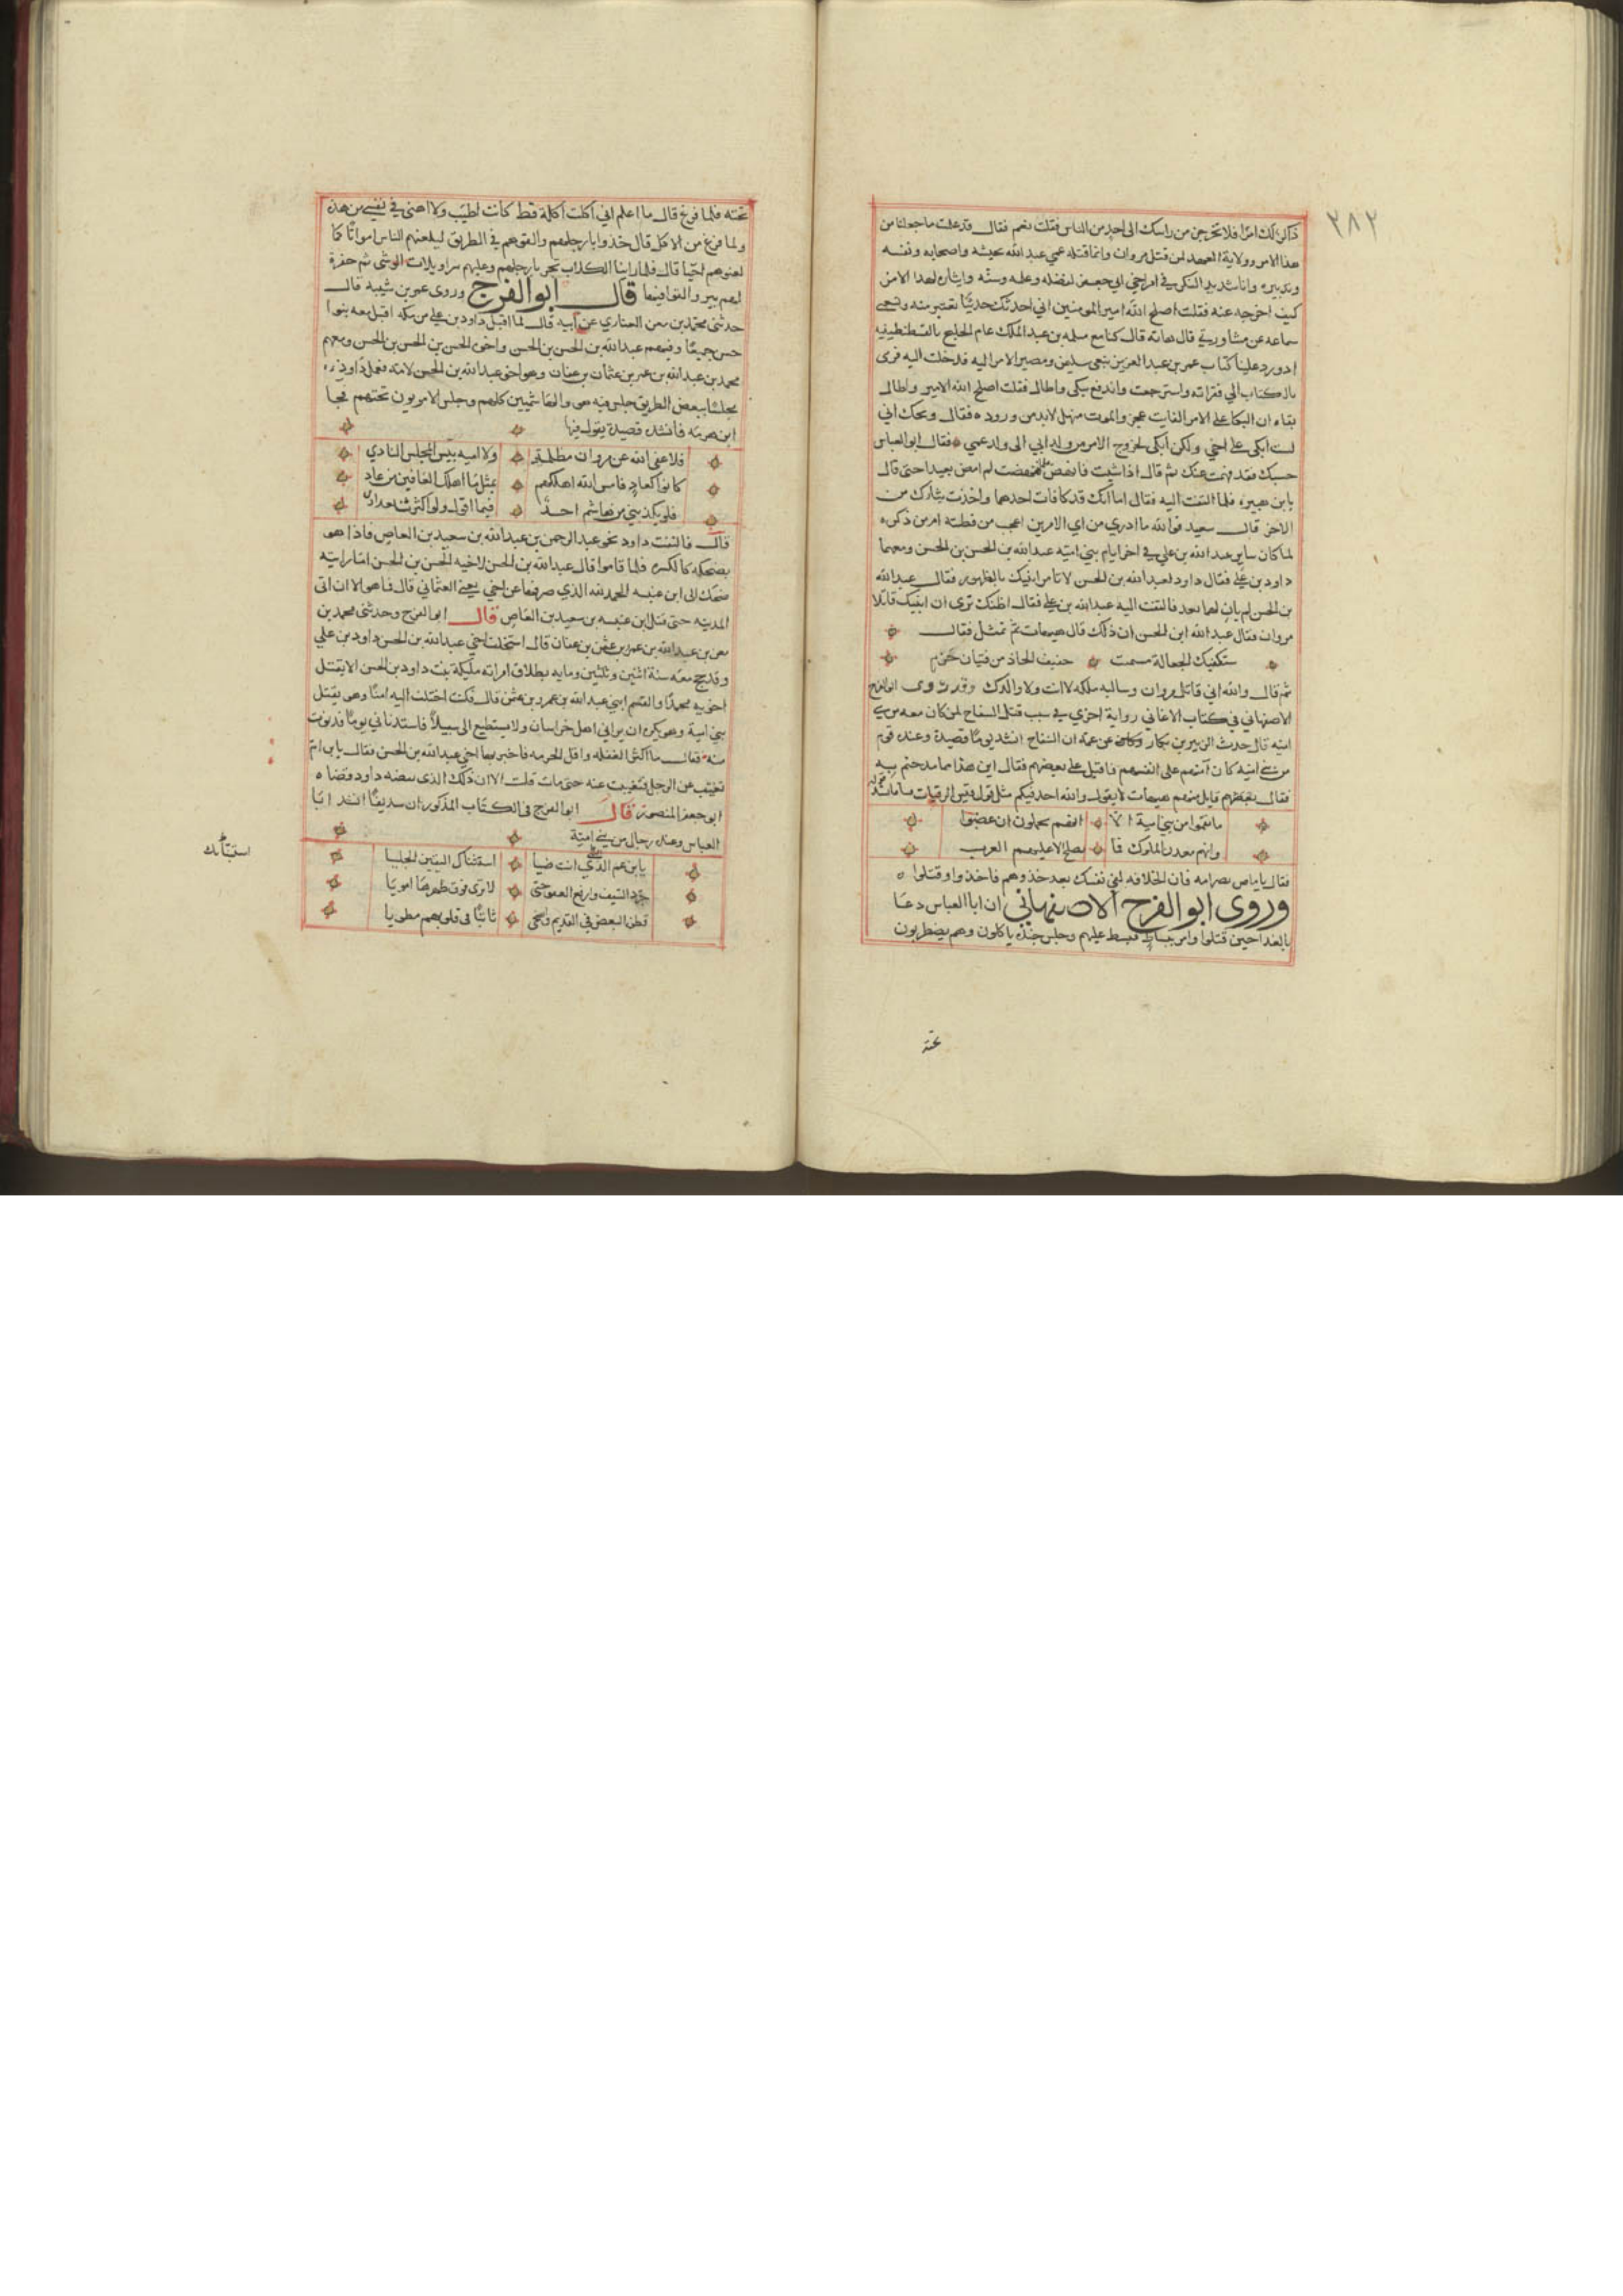 ٣٨٢
ذاكر لك امرا فلا تخرجن من راسك الى احد من الناس فقلت نعم فقال قد علمت ما جعلنا من
هذا الامر وولاية العهد لمن قتل مروان وانما قتله عمي عبد الله بجيشه واصحابه ونفسه
وتدبيره وانا شديد الفكر في امر اخي ابي جعفر لفضله وعلمه وسنه وايثاره لهذا الامر
كيف اخرجه عنه فقلت اصلح الله امير المومنين اني احدثك حديثا تعتبر منه وتستغني
سماعه عن مشاورتي قال هاته قال كنا مع مسلمه بن عبد الملك عام الخليج بالقسطنطينيه
اذ ورد علينا كتاب عمر بن عبد العزيز بنعي سليمن ومصير الامر اليه فدخلت اليه فرمى
بالكتاب الي فقراته واسترجعت واندفع يبكي واطال فقلت اصلح الله الامير واطال
بقاه ان البكا على الامر الفايت عجز والموت منهل لابد من وروده فقال ويحك اني
لست ابكي على اخي ولكن ابكي لخروج الامر من ولد ابي الى ولد عمي فقال ابو العباس
حسبك فقد فهمت عنك ثم قال اذا شيت فانهض فنهضت لم امض بعيدا حتى قال
يا بن هبيره فلما التفت اليه فقال اما انك قد كافات احدهما واخذت بثارك من
الاخر قال سعيد فوالله ما ادري من اي الامرين اعجب من فطنته ام من ذكره
لما كان ساير عبد الله بن علي في اخر ايام بني اميه عبد الله بن الحسن بن الحسن ومعهما
داود بن علي فقال داود لعبد الله بن الحسن لا تامر ابنيك بالظهور فقال عبد الله
بن الحسن لم يان لهما بعد فالتفت اليه عبد الله بن علي فقال اظنك ترى ان ابنيك قاتلا
مروان فقال عبد الله ابن الحسن ان ذلك قال هيهات ثم تمثل فقال
ستكفيك الجعالة مسمت خفيف الحاذ من فتيان جرم
ثم قال والله اني قاتل مروان وسالبه ملكه لا انت ولا والدك وقد روى ابو الفرج
الاصفهاني في كتاب الاغاني رواية اخرى في سبب قتل السفاح لمن كان معه من بني
اميه قال حدث الزبير بن بكار عن عمه ان السفاح انشد يوما قصيدة وعنده قوم
من بني اميه كان آمنهم على انفسهم فاقبل على بعضهم فقال اين هذا مما مدحتم به
فقال بعضهم قايل منهم هيهات لا يقول والله احد فيكم مثل قول قيس الرقيات
ما نقموا من بني امية الا انهم يحلمون ان غضبوا
وانهم معدن الملوك فا يصلح الا عليهم العرب
فقال يا ماص بظر امه فان الخلافه لفي نفسك بعد خذوهم فاخذوا وقتلوا
وروى ابو الفرج الاصفهاني ان ابا العباس دعا
بالغدا حين قتلوا وامر ببساط فبسط عليهم وجلس عنده ياكلون وهم يضطربون
تحته
تحته فلما فرغ قال ما اعلم اني اكلت اكلة قط كانت اطيب ولا اهنى في نفسي من هذه
ولما فرغ من الاكل قال خذوا بارجلهم والقوهم في الطريق ليلعنهم الناس امواتا كما
لعنوهم احيا قال فلما راينا الكلاب تجر بارجلهم وعليهم سراويلات الوشي ثم حفرة
لهم بير والقوا فيها قال ابو الفرج وروى عمر بن شيبه قال
حدثني محمد بن معن الغفاري عن ابيه قال لما اقبل داود بن علي من مكه اقبل معه بنوا
حسن جميعا وفيهم عبد الله بن الحسن بن الحسن واخوه الحسن بن الحسن بن الحسن ومعهم
محمد بن عبد الله بن عمر بن عثمان بن عفان وهو اخو عبد الله بن الحسن لامه فعمل داود
مجلسا ببعض الطريق جلس فيه هو والهاشميين كلهم وجلس الامويون تحتهم فجا
ابن هرمه فانشد قصيدة يقول فيها
فلا عفى الله عن مروان مظلمة ولا اميه بيس المجلس النادي
كانوا كعاد فامسى الله اهلكهم بمثل ما اهلك الغافين من عاد
فلن يكذبني من هاشم احد فيما اقول ولو اكثرت تعدادى
قال فالتفت داود نحو عبد الرحمن بن عبد الله بن سعيد بن العاص فاذا هو
يضحكه كالكسره فلما قاموا قال عبد الله بن الحسن لاخيه الحسن بن الحسن اما رايته
ضحك الى ابن عنبسه الحمد لله الذي صرفها عن اخي يعني العثماني قال فما هو الا ان اتى
المدينه حتى قتل ابن عنبسه بن سعيد بن العاص قال ابو الفرج وحدثني محمد بن
معن بن عبد الله بن عمر بن عثمن بن عفان قال استحلف اخي عبد الله بن الحسن داود بن علي
وقد حج معه سنة اثنين وثلثين ومايه بطلاق امراته مليكة بنت داود بن الحسن الا يقتل
اخويه محمدا والقسم ابني عبد الله بن عمرو بن عثمن قال فكنت اختلف اليه امنا وهو يقتل
بني امية وهو يكره ان يراني اهل خراسان ولا يستطيع الى سبيلا فاستدناني يوما فدنوت
منه فقال ما اكثر الغفله واقل الحزمه فاخبر بها اخي عبد الله بن الحسن فقال يا بن ام
تغيب عن الرجل فتغيبت عنه حتى مات قلت الا ان ذلك الذي نقضه داود قضاه
ابو جعفر المنصور قال ابو الفرج في الكتاب المذكور ان سديفا انشد ابا
العباس وعنده رجال من بني اميه
يابن عم النبي انت ضيا استبناك اليقين الجليا
جرد السيف وارفع العفو حتى لا ترى فوق ظهرها امويا
قطن البغض في القديم واضحى ثابتا في قلوبهم مطويا
استبنا بك